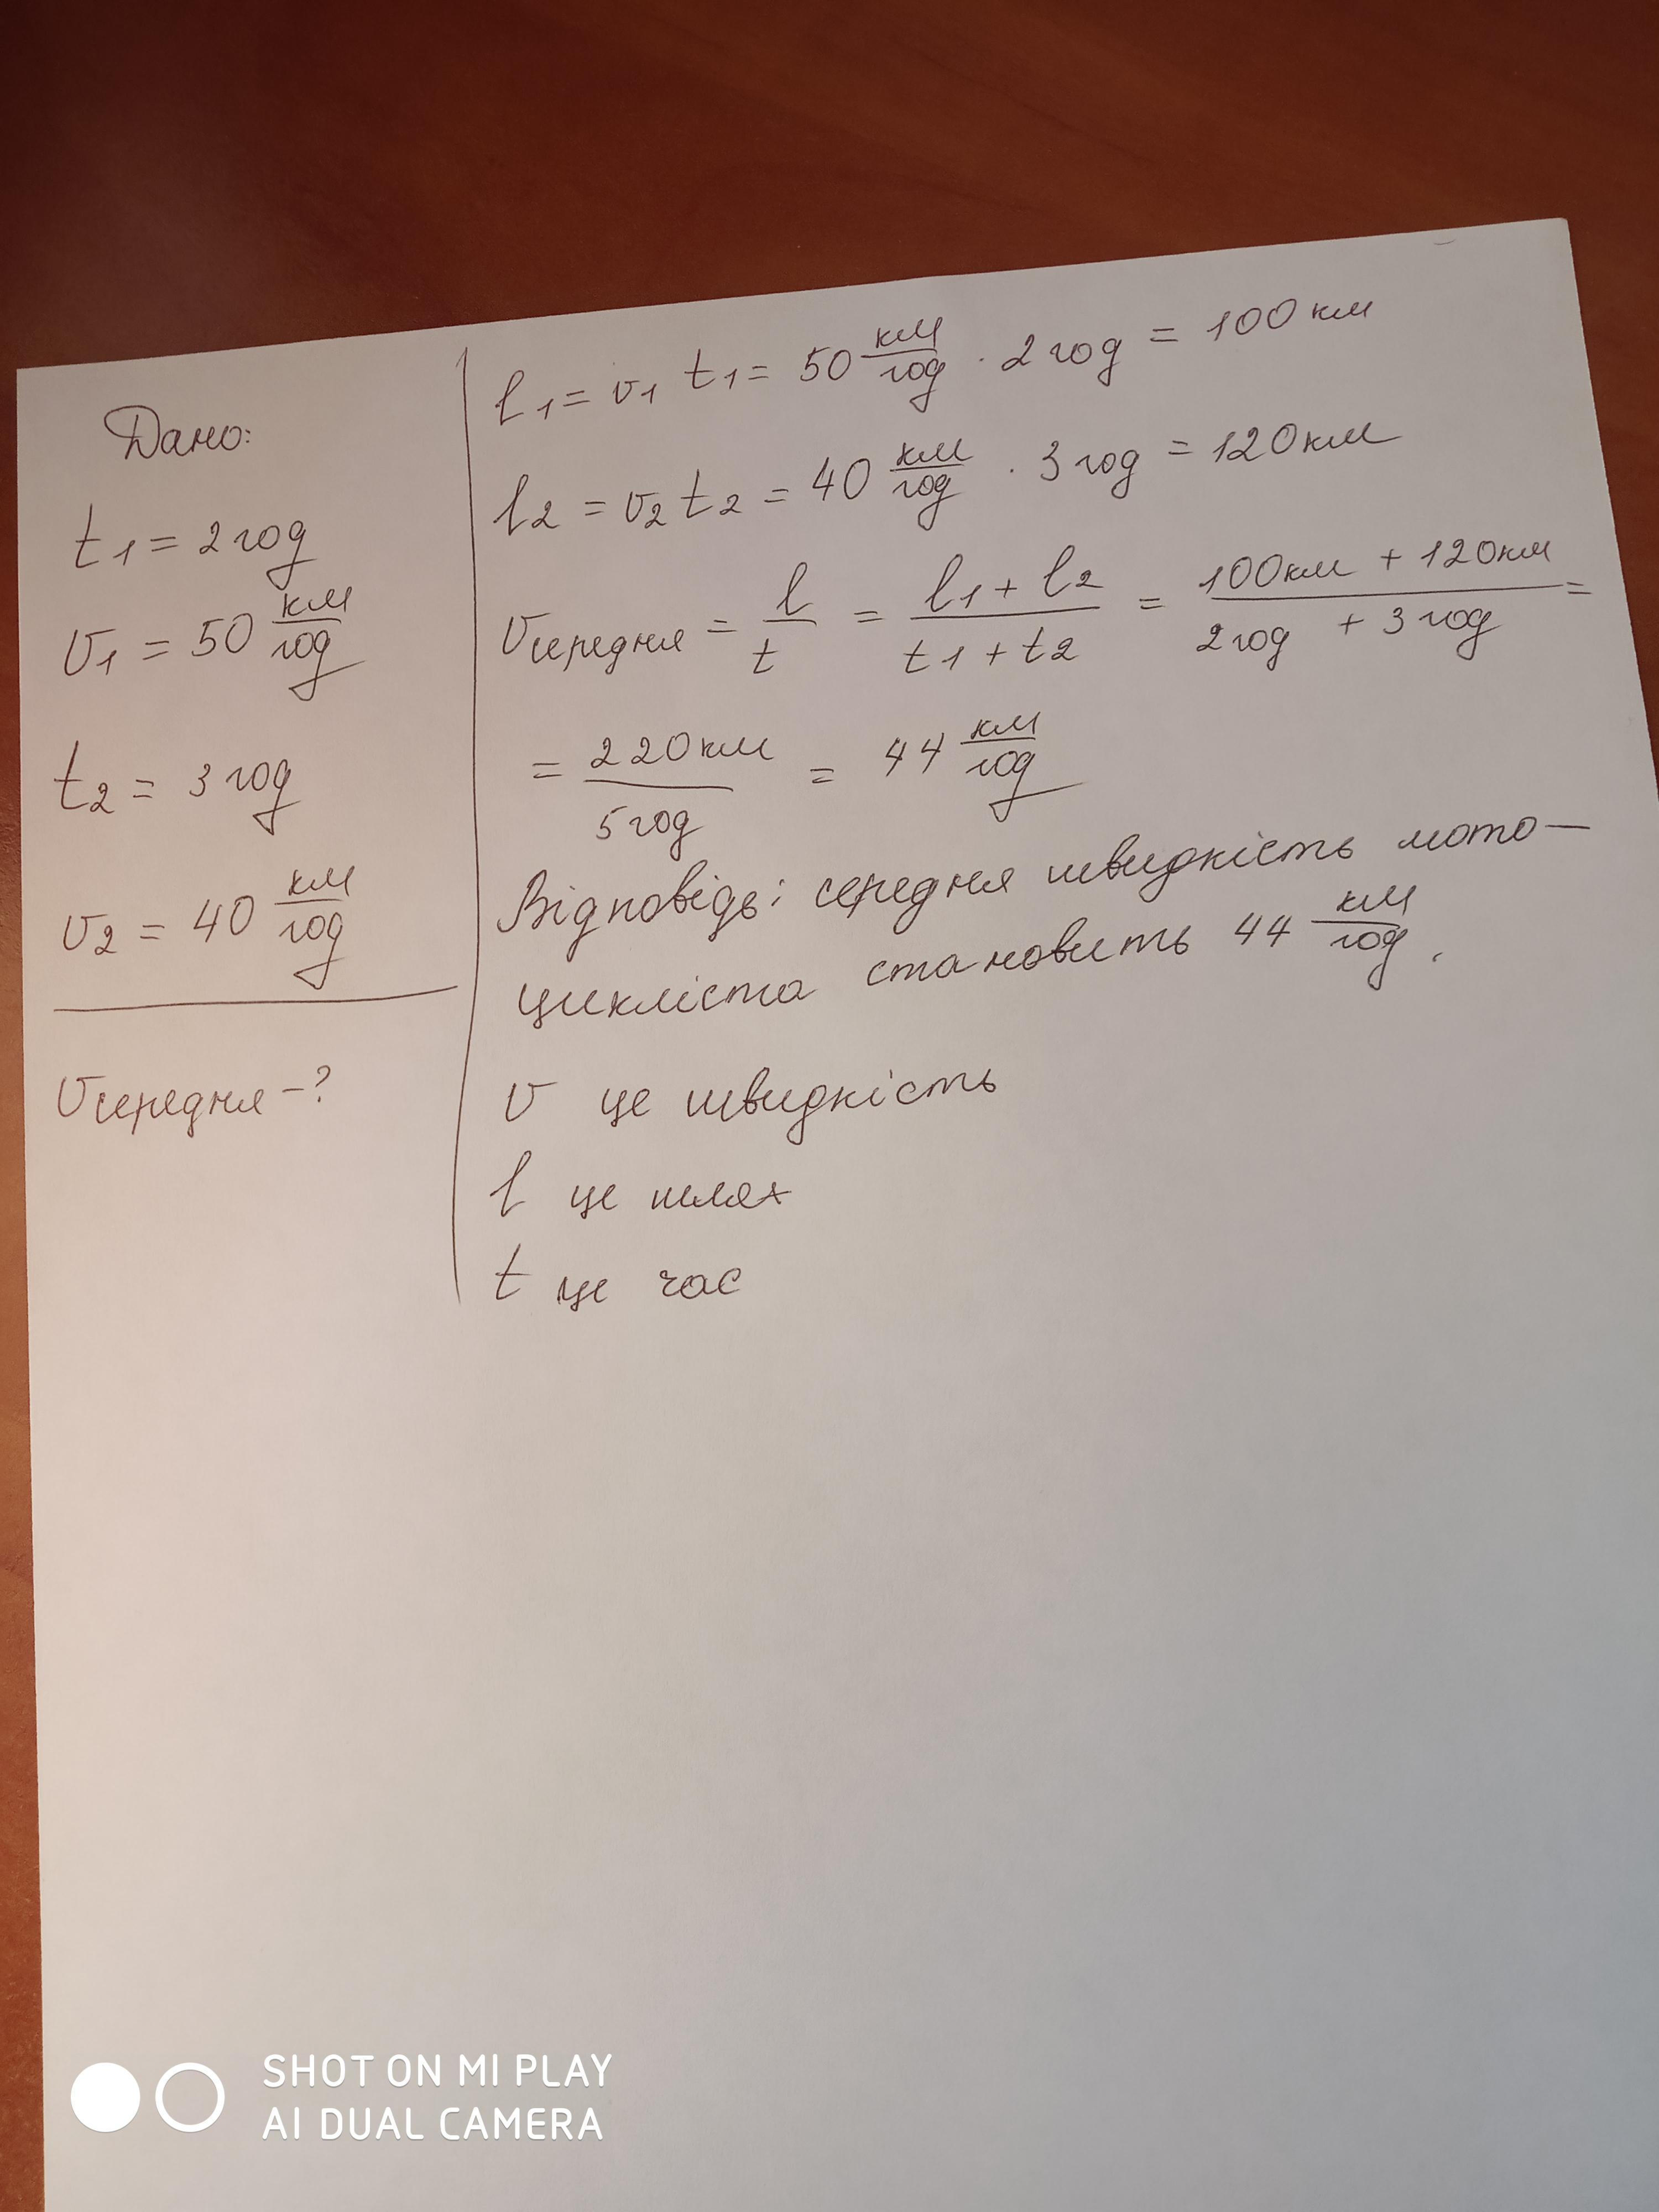 Дано:
t1 = 2 год
v1 = 50 км/год
t2 = 3 год
v2 = 40 км/год
vсередня – ?
l1 = v1 t1 = 50 км/год · 2 год = 100 км
l2 = v2 t2 = 40 км/год · 3 год = 120 км
vсередня = l/t = l1 + l2 / t1 + t2 = 100 км + 120 км / 2 год + 3 год =
= 220 км / 5 год = 44 км/год
Відповідь: середня швидкість мото–
цикліста становить 44 км/год.
v це швидкість
l це шлях
t це час
SHOT ON MI PLAY
AI DUAL CAMERA